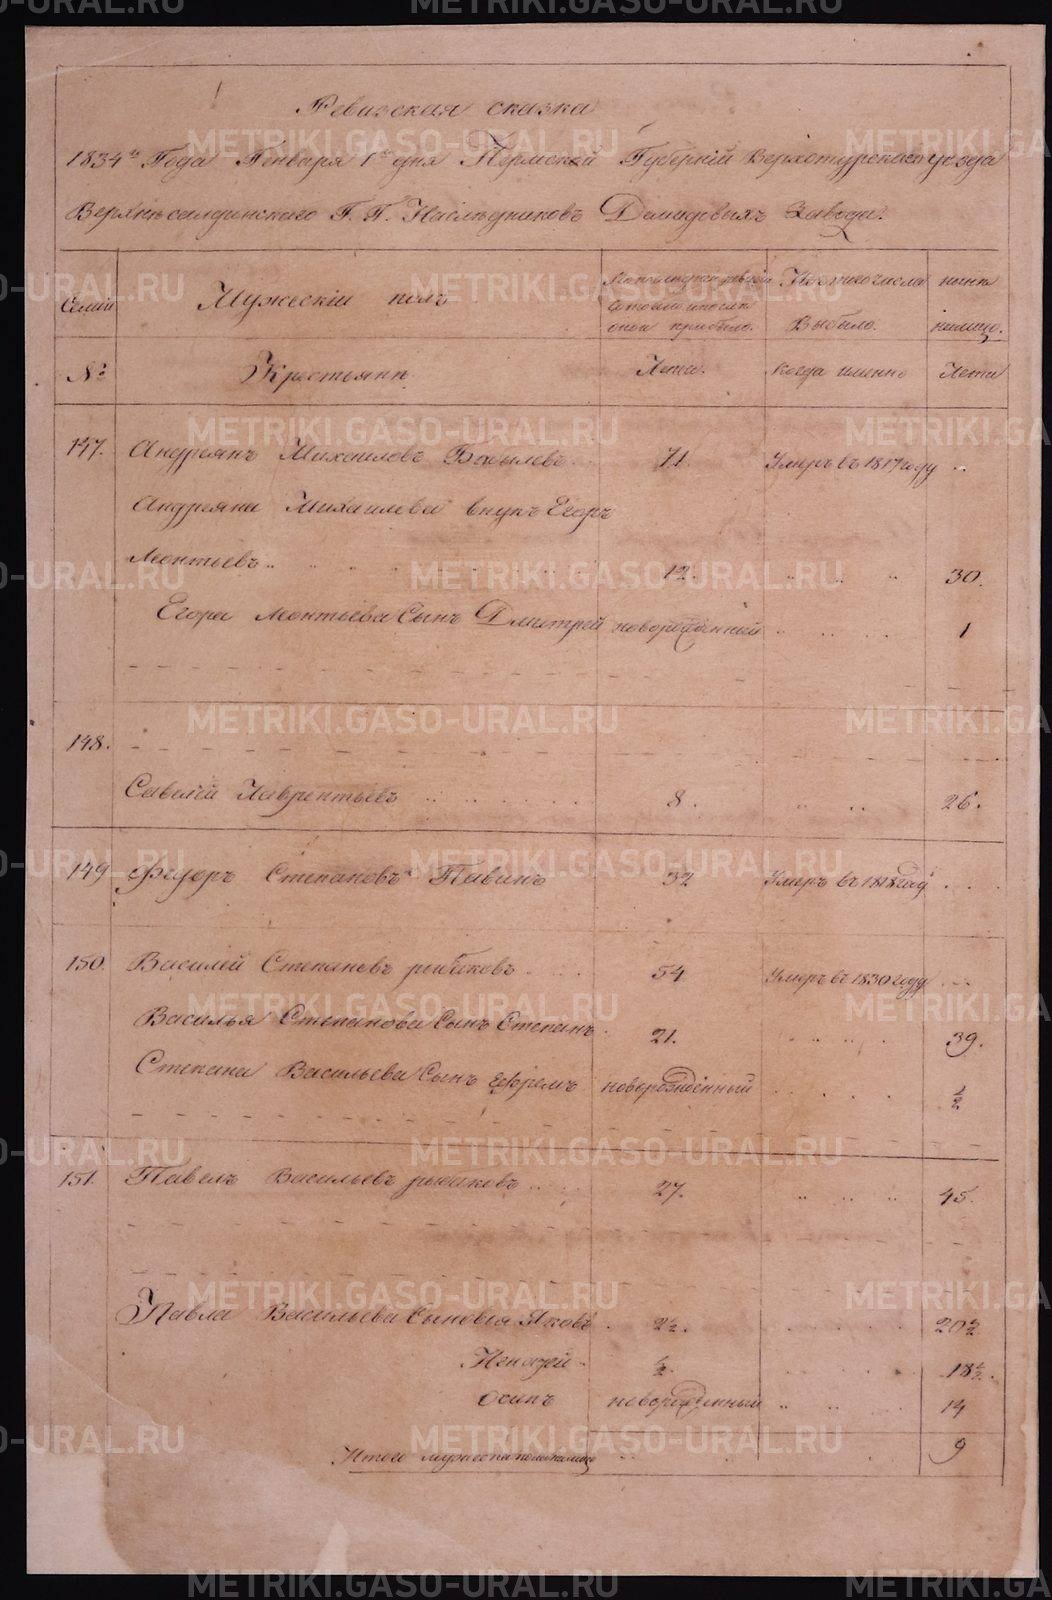 Ревизская сказка
1834го Года Генваря 1го дня Пермской Губернiй Верхотурскаго уезда
Верхнѣсалдинскаго Г. Г. Наслѣдниковъ Демидовыхъ Завода.
Семьи Мужескiй полъ По последней ревизiи Изъ того числа ныне
Состояло и после
оной прибыло. Выбыло. налицо.
№ Крестьяне Лета. когда именно Лета
147. Андреянъ Михаиловъ 71. Умеръ въ 1817 году
Андреяна Михаилова внукъ Егоръ
Леонтьевъ 12. 30.
Егора Леонтьева Сынъ Дмитрей новорожденный 1
148.
Савелiй Лаврентьевъ 8. 26.
149 Федоръ Степановъ 32 Умеръ въ 1818 году
150. Василей Степановъ рыбаковъ 54 Умеръ въ 1830 году
Василья Степанова Сынъ Степанъ 21. 39.
Степана Васильева Сынъ Ефремъ новорожденный 1/2
151. Павелъ Васильевъ рыбаковъ 27. 45.
Павла Васильева Сыновья Яковъ 2 1/2. 20 1/2
1/2. 18 1/2.
Осипъ новорожденный 14
Итого мужеска пола налицо 9
METRIKI.GASO-URAL.RU